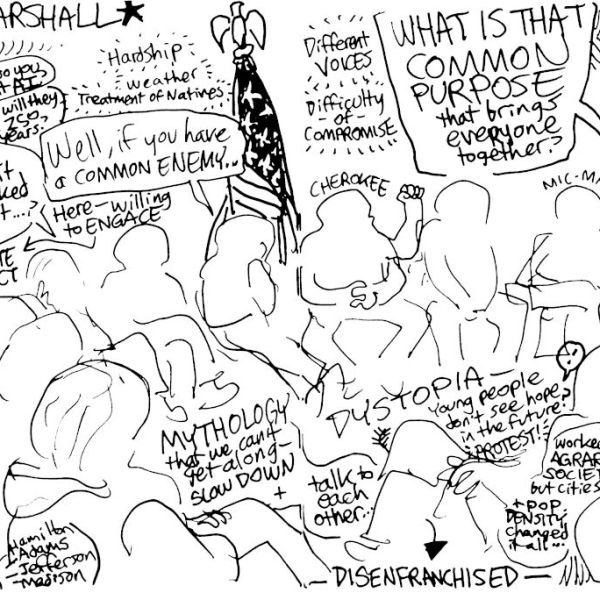 ARSHALL★
do you
AI
will they
250
years.
Hardship
weather
Treatment of Natives
Well, if you have
a COMMON ENEMY...
it
ked
t....?
Here - willing
to ENGAGE
TE
CT
Different
VOICES
Difficulty
of
COMPROMISE
WHAT IS THAT
COMMON
PURPOSE
that brings
everyone
together?
CHEROKEE
MIC-MA
MYTHOLOGY
that we can't
get along -
SLOW DOWN
+
talk to
each
other...
DYSTOPIA -
Young people
don't see hope
in the future?
PROTEST!
worked
AGRAR
SOCIET
but cities
+ POP
DENSITY
changed
it all...
Hamilton
- Adams
- Jefferson
- Madison
- DISENFRANCHISED -